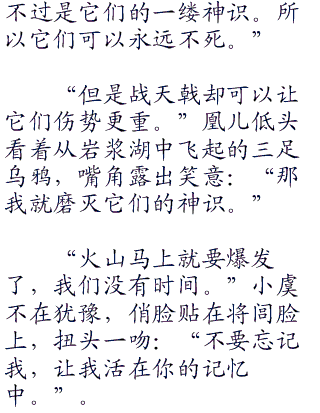 不过是它们的一缕神识。所
以它们可以永远不死。”
“但是战天戟却可以让
它们伤势更重。”凰儿低头
看着从岩浆湖中飞起的三足
乌鸦，嘴角露出笑意：“那
我就磨灭它们的神识。”
“火山马上就要爆发
了，我们没有时间。”小虞
不在犹豫，俏脸贴在将闾脸
上，扭头一吻：“不要忘记
我，让我活在你的记忆
中。”。